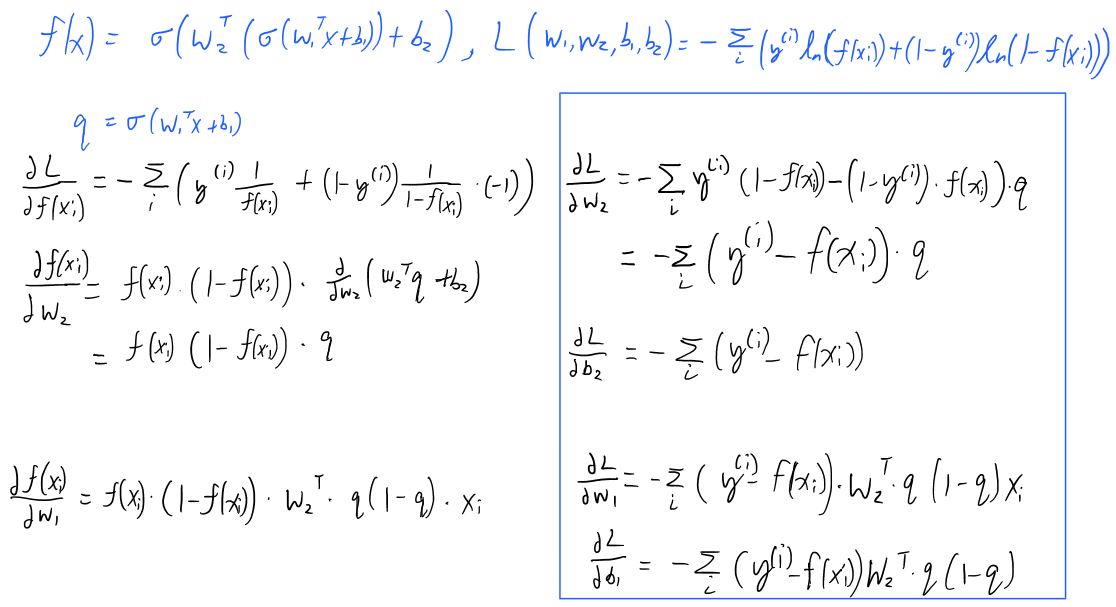 f(x) = σ(w₂ᵀ(σ(w₁ᵀx+b₁))+b₂), L(w₁,w₂,b₁,b₂) = -∑ᵢ(y⁽ⁱ⁾ln(f(xᵢ)+(1-y⁽ⁱ⁾)ln(1-f(xᵢ)))
q = σ(w₁ᵀx+b₁)
∂L/∂f(xᵢ) = -∑ᵢ(y⁽ⁱ⁾ 1/f(xᵢ) + (1-y⁽ⁱ⁾) 1/(1-f(xᵢ)) · (-1))
∂f(xᵢ)/∂w₂ = f(xᵢ) · (1-f(xᵢ)) · ∂/∂w₂ (w₂ᵀq+b₂)
= f(xᵢ) (1-f(xᵢ)) · q
∂f(xᵢ)/∂w₁ = f(xᵢ) · (1-f(xᵢ)) · w₂ᵀ · q(1-q) · xᵢ
∂L/∂w₂ = -∑ᵢ y⁽ⁱ⁾ (1-f(xᵢ)-(1-y⁽ⁱ⁾) · f(xᵢ)) · q
= -∑ᵢ (y⁽ⁱ⁾ - f(xᵢ)) · q
∂L/∂b₂ = -∑ᵢ (y⁽ⁱ⁾ - f(xᵢ))
∂L/∂w₁ = -∑ᵢ (y⁽ⁱ⁾ - f(xᵢ)) · w₂ᵀ · q (1-q) xᵢ
∂L/∂b₁ = -∑ᵢ (y⁽ⁱ⁾ - f(xᵢ)) w₂ᵀ · q (1-q)